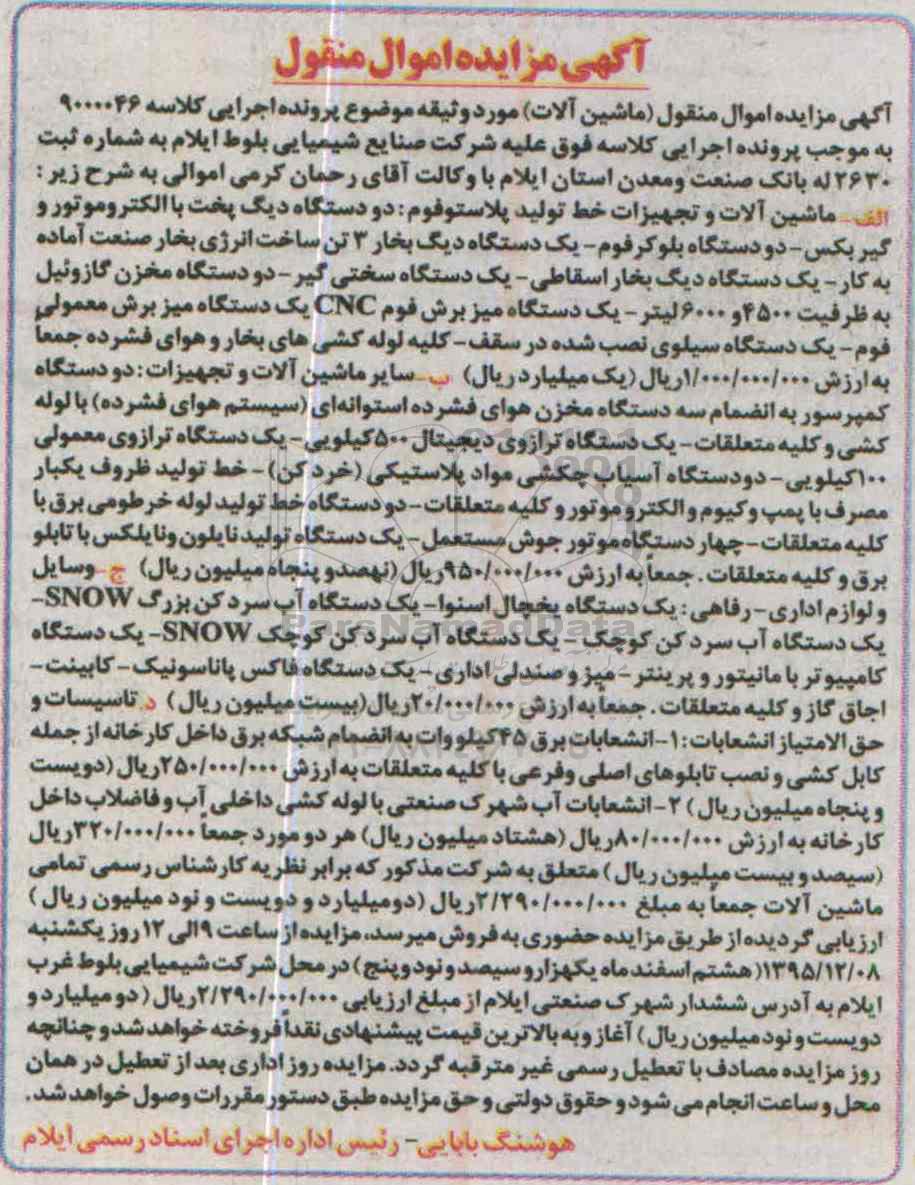 آگهی مزایده اموال منقول
آگهی مزایده اموال منقول (ماشین آلات) مورد وثیقه موضوع پرونده اجرایی کلاسه ۹۰۰۰۰۴۶
به موجب پرونده اجرایی کلاسه فوق علیه شرکت صنایع شیمیایی بلوط ایلام به شماره ثبت
۲۶۳۰ له بانک صنعت ومعدن استان ایلام با وکالت آقای رحمان کرمی اموالی به شرح زیر :
الف- ماشین آلات و تجهیزات خط تولید پلاستوفوم : دو دستگاه دیگ پخت با الکتروموتور و
گیر بکس- دو دستگاه بلوکرفوم- یک دستگاه دیگ بخار ۳ تن ساخت انرژی بخار صنعت آماده
به کار- یک دستگاه دیگ بخار اسقاطی- یک دستگاه سختی گیر- دو دستگاه مخزن گازوئیل
به ظرفیت ۴۵۰۰ و ۶۰۰۰ لیتر- یک دستگاه میز برش فوم CNC یک دستگاه میز برش معمولی
فوم- یک دستگاه سیلوی نصب شده در سقف- کلیه لوله کشی های بخار و هوای فشرده جمعاً
به ارزش ۱/۰۰۰/۰۰۰/۰۰۰ ریال (یک میلیارد ریال) ب- سایر ماشین آلات و تجهیزات : دو دستگاه
کمپرسور به انضمام سه دستگاه مخزن هوای فشرده استوانه‌ای (سیستم هوای فشرده) با لوله
کشی و کلیه متعلقات- یک دستگاه ترازوی دیجیتال ۵۰۰ کیلویی- یک دستگاه ترازوی معمولی
۱۰۰ کیلویی- دودستگاه آسیاب چکشی مواد پلاستیکی (خرد کن)- خط تولید ظروف یکبار
مصرف با پمپ وکیوم و الکتروموتور و کلیه متعلقات- دو دستگاه خط تولید لوله خرطومی برق با
کلیه متعلقات- چهار دستگاه موتور جوش مستعمل- یک دستگاه تولید نایلون ونایلکس با تابلو
برق و کلیه متعلقات. جمعاً به ارزش ۹۵۰/۰۰۰/۰۰۰ ریال (نهصدو پنجاه میلیون ریال) ج- وسایل
و لوازم اداری- رفاهی : یک دستگاه یخچال اسنوا- یک دستگاه آب سرد کن بزرگ SNOW-
یک دستگاه آب سرد کن کوچک - یک دستگاه آب سرد کن کوچک SNOW- یک دستگاه
کامپیوتر با مانیتور و پرینتر- میز و صندلی اداری- یک دستگاه فاکس پاناسونیک- کابینت-
اجاق گاز و کلیه متعلقات. جمعاً به ارزش ۲۰/۰۰۰/۰۰۰ ریال(بیست میلیون ریال) د- تاسیسات و
حق الامتیاز انشعابات : ۱- انشعابات برق ۴۵ کیلو وات به انضمام شبکه برق داخل کارخانه از جمله
کابل کشی و نصب تابلوهای اصلی وفرعی با کلیه متعلقات به ارزش ۲۵۰/۰۰۰/۰۰۰ ریال (دویست
و پنجاه میلیون ریال) ۲- انشعابات آب شهرک صنعتی با لوله کشی داخلی آب و فاضلاب داخل
کارخانه به ارزش ۸۰/۰۰۰/۰۰۰ ریال (هشتاد میلیون ریال) هر دو مورد جمعاً ۳۲۰/۰۰۰/۰۰۰ ریال
(سیصد و بیست میلیون ریال) متعلق به شرکت مذکور که برابر نظریه کارشناس رسمی تمامی
ماشین آلات جمعاً به مبلغ ۲/۲۹۰/۰۰۰/۰۰۰ ریال (دومیلیارد و دویست و نود میلیون ریال)
ارزیابی گردیده از طریق مزایده حضوری به فروش میرسد، مزایده از ساعت ۹ الی ۱۲ روز یکشنبه
۱۳۹۵/۱۲/۰۸ (هشتم اسفند ماه یکهزارو سیصد و نود و پنج) در محل شرکت شیمیایی بلوط غرب
ایلام به آدرس ششدار شهرک صنعتی ایلام از مبلغ ارزیابی ۲/۲۹۰/۰۰۰/۰۰۰ ریال (دو میلیارد و
دویست و نود میلیون ریال) آغاز و به بالاترین قیمت پیشنهادی نقداً فروخته خواهد شد و چنانچه
روز مزایده مصادف با تعطیل رسمی غیر مترقبه گردد. مزایده روز اداری بعد از تعطیل در همان
محل و ساعت انجام می شود و حقوق دولتی و حق مزایده طبق دستور مقررات وصول خواهد شد.
هوشنگ بابایی- رئیس اداره اجرای اسناد رسمی ایلام
ParsNamadData